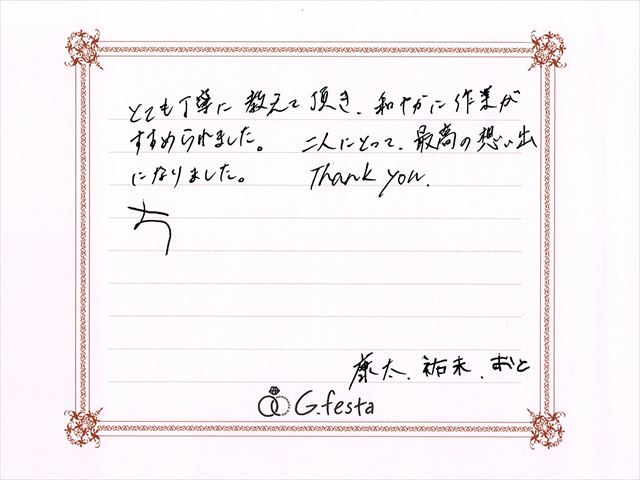 とても丁寧に教えて頂き、和やかに作業が
すすめられました。 二人にとって、最高の想い出
になりました。 Thank you.
康太、祐未、おと
G.festa